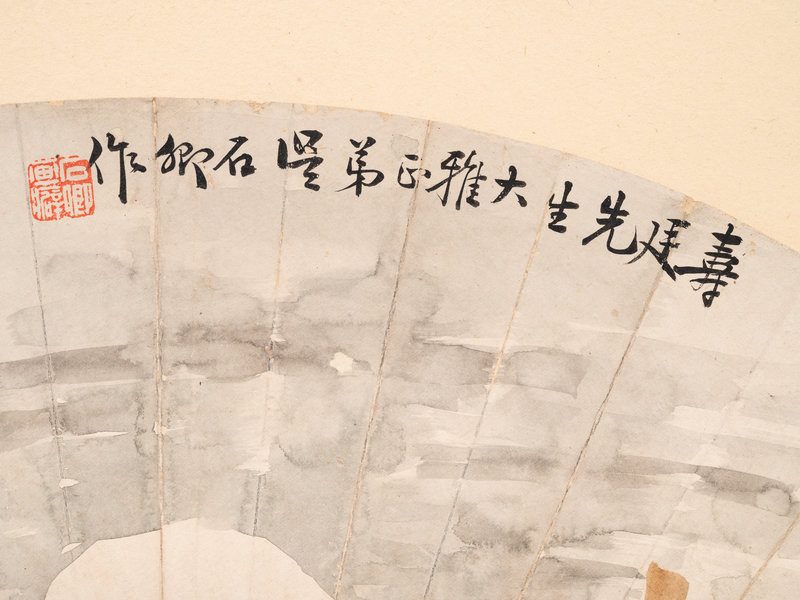 壽廷先生大雅正弟石卿作
石卿